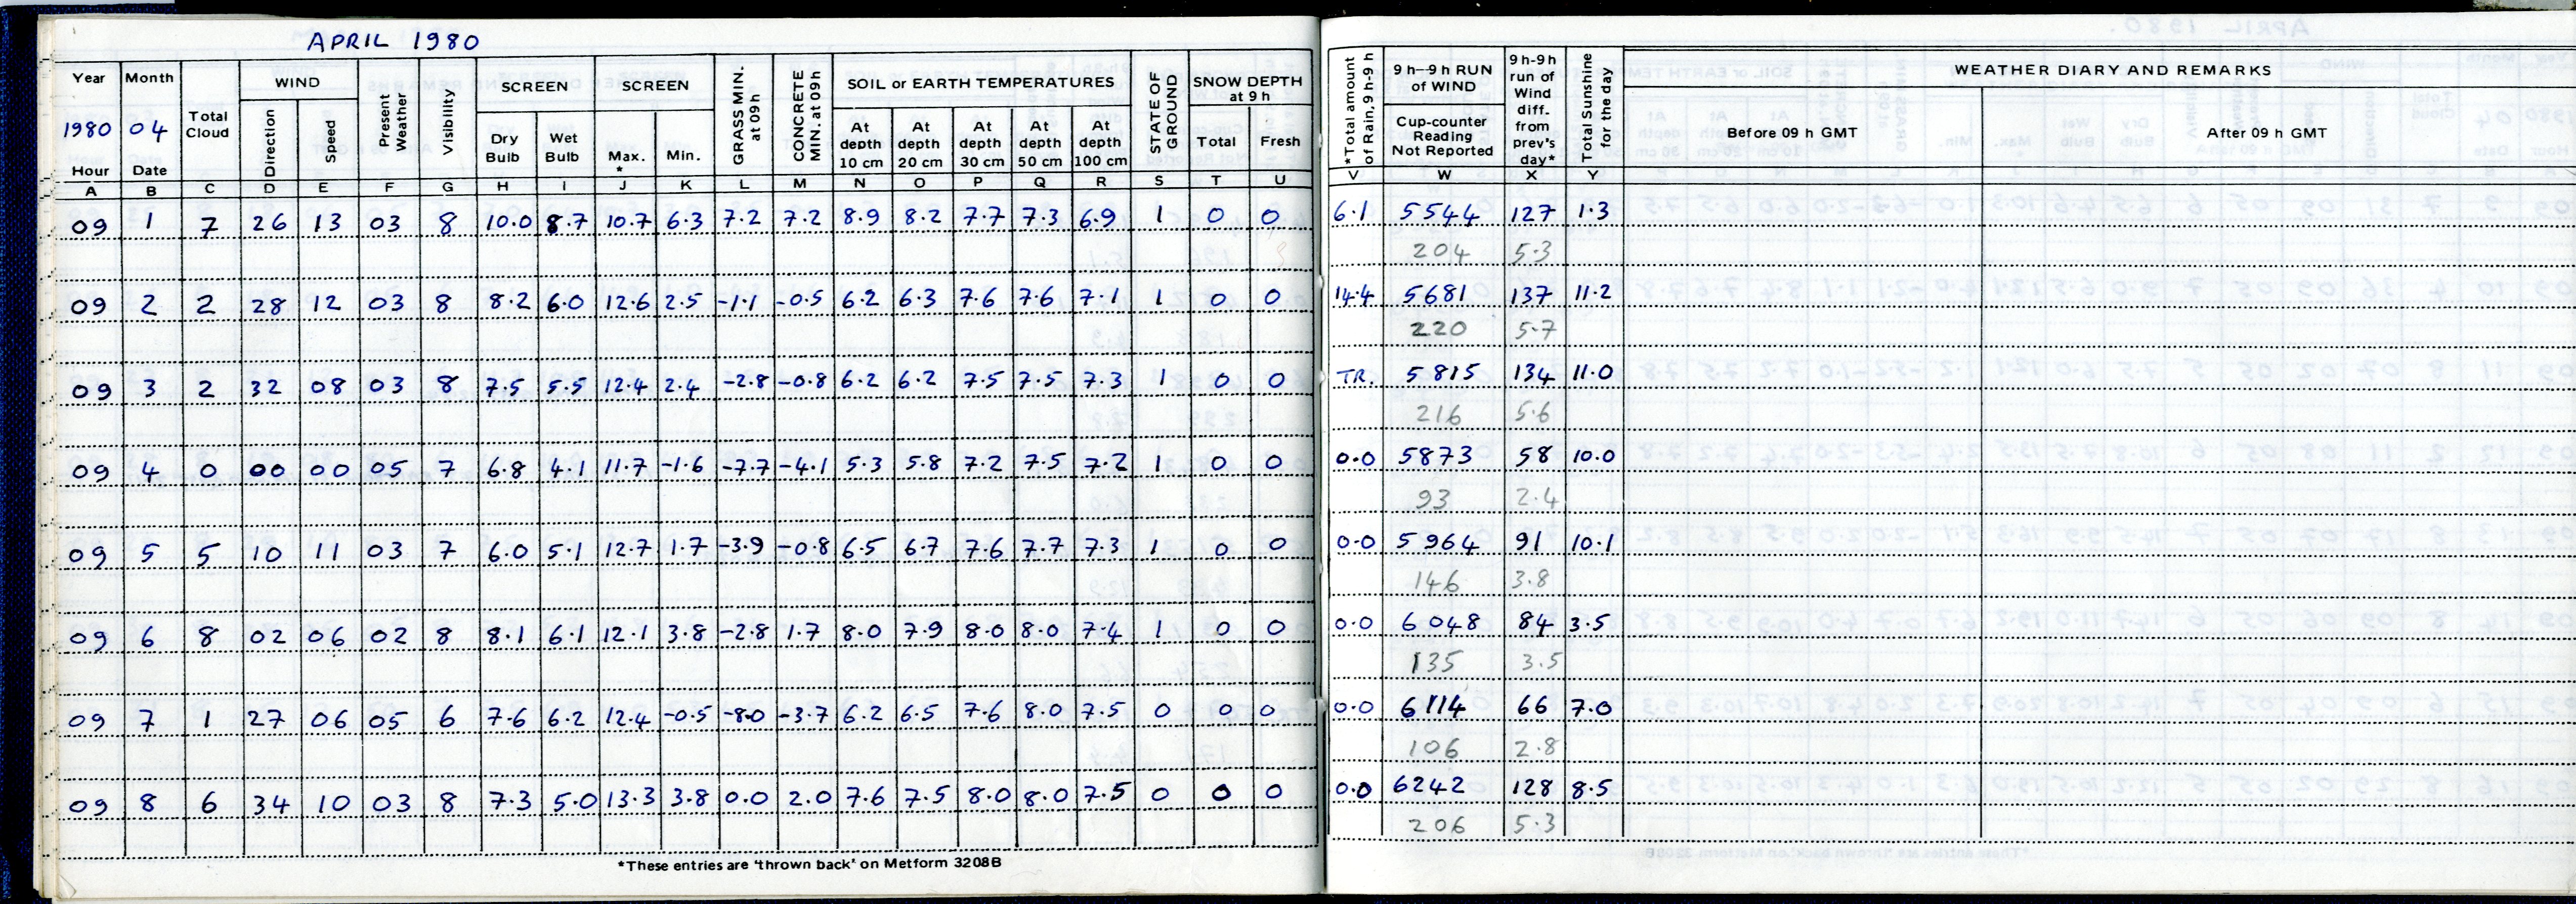 APRIL 1980
Year Month Total Cloud WIND Present Weather Visibility SCREEN SCREEN GRASS MIN. at 09h CONCRETE MIN. at 09h SOIL or EARTH TEMPERATURES STATE OF GROUND SNOW DEPTH at 9 h *Total amount of Rain, 9h-9h 9h—9h RUN of WIND 9h-9h run of Wind diff. from prev's day* Total Sunshine for the day WEATHER DIARY AND REMARKS
1980 04 Direction Speed Dry Bulb Wet Bulb Max. * Min. At depth 10 cm At depth 20 cm At depth 30 cm At depth 50 cm At depth 100 cm Total Fresh Cup-counter Reading Not Reported Before 09 h GMT After 09 h GMT
Hour Date
A B C D E F G H I J K L M N O P Q R S T U V W X Y
09 1 7 26 13 03 8 10.0 8.7 10.7 6.3 7.2 7.2 8.9 8.2 7.7 7.3 6.9 1 0 0 6.1 5544 127 1.3
204 5.3
09 2 2 28 12 03 8 8.2 6.0 12.6 2.5 -1.1 -0.5 6.2 6.3 7.6 7.6 7.1 1 0 0 14.4 5681 137 11.2
220 5.7
09 3 2 32 08 03 8 7.5 5.5 12.4 2.4 -2.8 -0.8 6.2 6.2 7.5 7.5 7.3 1 0 0 TR. 5815 134 11.0
216 5.6
09 4 0 00 00 05 7 6.8 4.1 11.7 -1.6 -7.7 -4.1 5.3 5.8 7.2 7.5 7.2 1 0 0 0.0 5873 58 10.0
93 2.4
09 5 5 10 11 03 7 6.0 5.1 12.7 1.7 -3.9 -0.8 6.5 6.7 7.6 7.7 7.3 1 0 0 0.0 5964 91 10.1
146 3.8
09 6 8 02 06 02 8 8.1 6.1 12.1 3.8 -2.8 1.7 8.0 7.9 8.0 8.0 7.4 1 0 0 0.0 6048 84 3.5
135 3.5
09 7 1 27 06 05 6 7.6 6.2 12.4 -0.5 -8.0 -3.7 6.2 6.5 7.6 8.0 7.5 0 0 0 0.0 6114 66 7.0
106 2.8
09 8 6 34 10 03 8 7.3 5.0 13.3 3.8 0.0 2.0 7.6 7.5 8.0 8.0 7.5 0 0 0 0.0 6242 128 8.5
206 5.3
*These entries are 'thrown back' on Metform 3208B